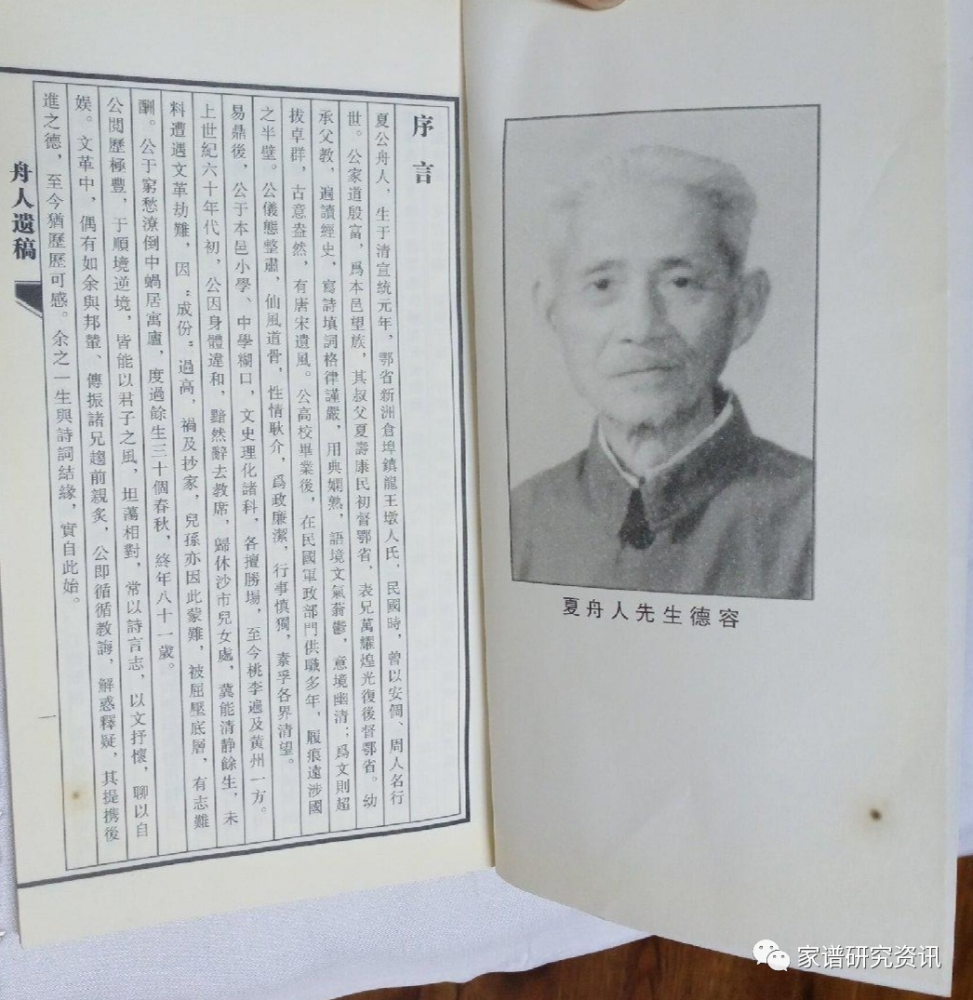 序言
夏公舟人，生于清宣統元年，鄂省新洲倉埠鎮龍王墩人氏，民國時，曾以安侗、周人名行
世。公家道殷富，爲本邑望族，其叔父夏壽康民初督鄂省，表兄萬耀煌光復後督鄂省。幼
承父教，遍讀經史，寫詩填詞格律謹嚴，用典嫻熟，語境文氣蓊鬱，意境幽清；爲文則超
拔卓群，古意盎然，有唐宋遺風。公高校畢業後，在民國軍政部門供職多年，履痕遠涉國
之半壁。公儀態整肅，仙風道骨，性情耿介，爲政廉潔，行事慎獨，素孚各界清望。
易鼎後，公于本邑小學、中學糊口，文史理化諸科，各擅勝場，至今桃李遍及黄州一方。
上世紀六十年代初，公因身體違和，黯然辭去教席，歸休沙市兒女處，冀能清静餘生，未
料遭遇文革劫難，因“成份”過高，禍及抄家，兒孫亦因此蒙難，被屈壓底層，有志難
酬。公于窮愁潦倒中蝸居寓廬，度過餘生三十個春秋，終年八十一歲。
公閲歷極豐，于順境逆境，皆能以君子之風，坦蕩相對，常以詩言志，以文抒懷，聊以自
娱。文革中，偶有如余與邦鏊、傳振諸兄趨前親炙，公即循循教誨，解惑釋疑，其提携後
進之德，至今猶歷歷可感。余之一生與詩詞結緣，實自此始。
舟人遺稿
一
夏舟人先生德容
家谱研究资讯